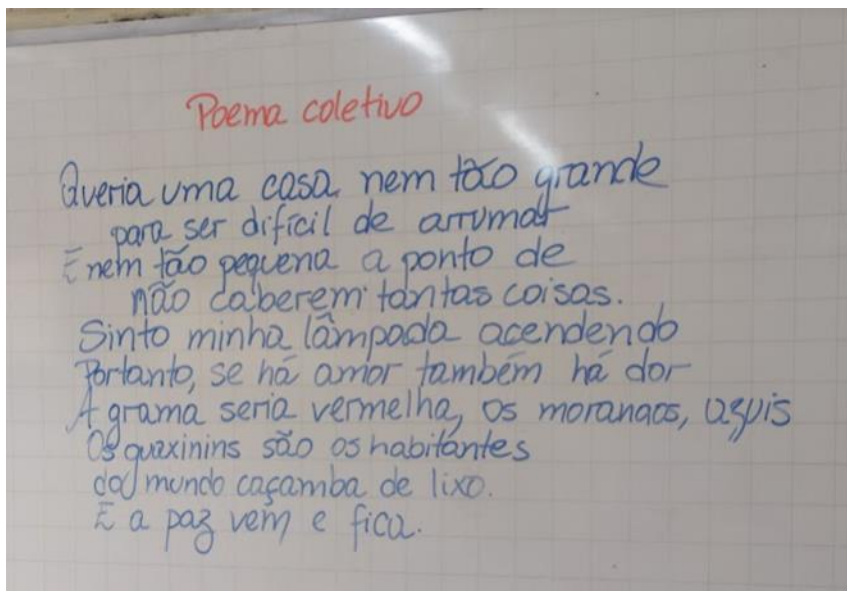 Poema coletivo
Queria uma casa nem tão grande
para ser difícil de arrumar
E nem tão pequena a ponto de
não caberem tantas coisas.
Sinto minha lâmpada acendendo
Portanto, se há amor também há dor
A grama seria vermelha, os morangos, azuis
Os guaxinins são os habitantes
do mundo caçamba de lixo.
E a paz vem e fica.